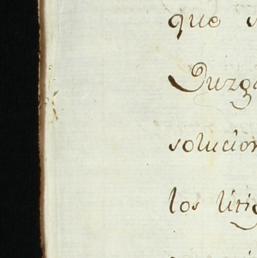 que
Juzga
solucion
los litig